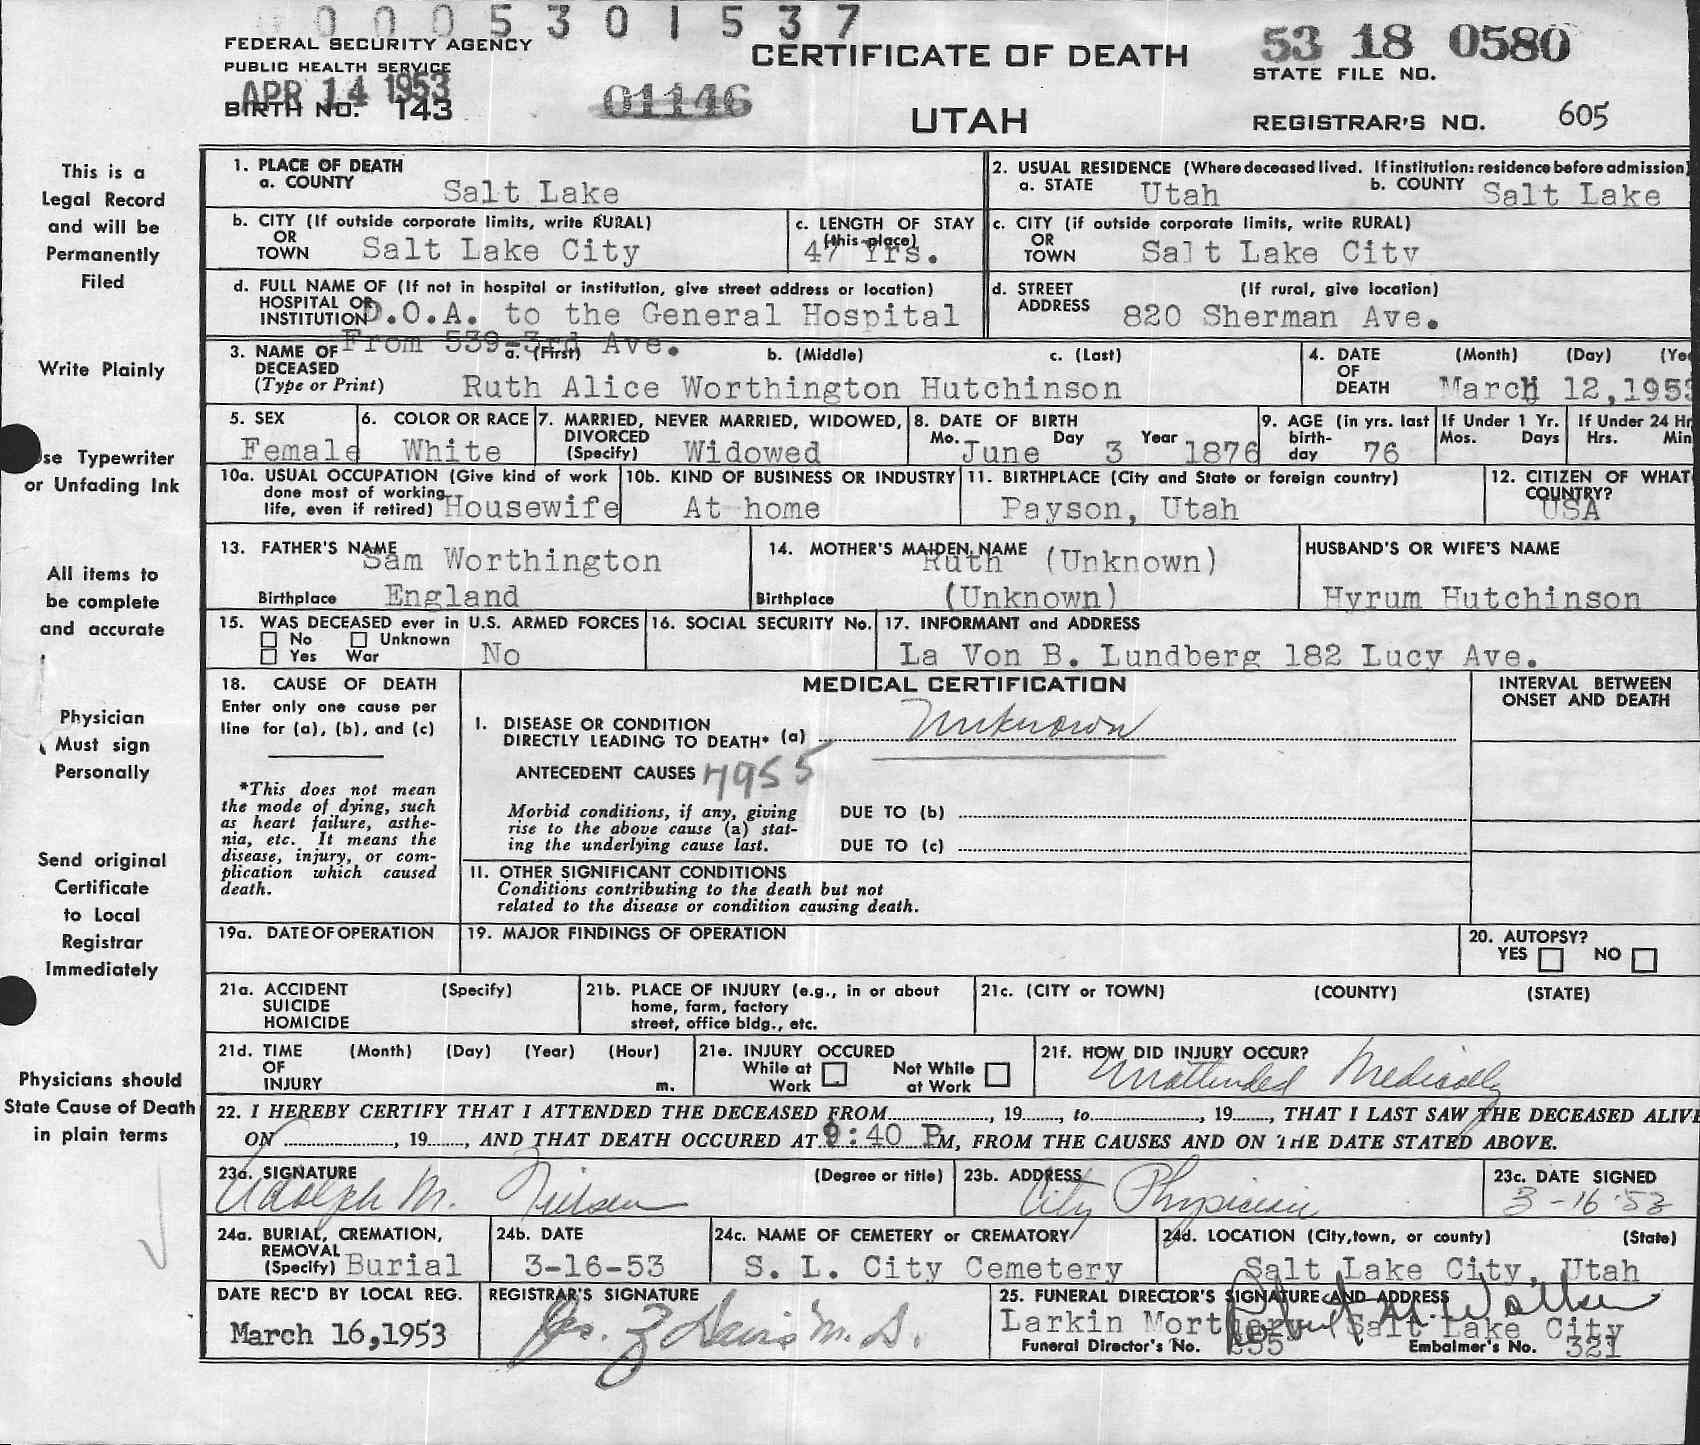 0005301537
FEDERAL SECURITY AGENCY
PUBLIC HEALTH SERVICE
APR 14 1953
BIRTH NO. 143
01146
CERTIFICATE OF DEATH
UTAH
53 18 0580
STATE FILE NO.
REGISTRAR'S NO. 605
This is a
Legal Record
and will be
Permanently
Filed
Write Plainly
se Typewriter
or Unfading Ink
All items to
be complete
and accurate
Physician
Must sign
Personally
Send original
Certificate
to Local
Registrar
Immediately
Physicians should
State Cause of Death
in plain terms
1. PLACE OF DEATH
a. COUNTY Salt Lake
2. USUAL RESIDENCE (Where deceased lived. If institution: residence before admission)
a. STATE Utah b. COUNTY Salt Lake
b. CITY (If outside corporate limits, write RURAL)
OR
TOWN Salt Lake City
c. LENGTH OF STAY
(this place)
47 Yrs.
c. CITY (if outside corporate limits, write RURAL)
OR
TOWN Salt Lake City
d. FULL NAME OF (If not in hospital or institution, give street address or location)
HOSPITAL OR
INSTITUTION D.O.A. to the General Hospital
From 539-3rd Ave.
d. STREET (If rural, give location)
ADDRESS 820 Sherman Ave.
3. NAME OF a. (First) b. (Middle) c. (Last)
DECEASED
(Type or Print) Ruth Alice Worthington Hutchinson
4. DATE (Month) (Day) (Yea
OF
DEATH March 12,1953
5. SEX
Female
6. COLOR OR RACE
White
7. MARRIED, NEVER MARRIED, WIDOWED,
DIVORCED
(Specify) Widowed
8. DATE OF BIRTH
Mo. June Day 3 Year 1876
9. AGE (in yrs. last
birth-
day 76
If Under 1 Yr.
Mos. Days
If Under 24 Hr
Hrs. Min
10a. USUAL OCCUPATION (Give kind of work
done most of working
life, even if retired) Housewife
10b. KIND OF BUSINESS OR INDUSTRY
At home
11. BIRTHPLACE (City and State or foreign country)
Payson, Utah
12. CITIZEN OF WHAT
COUNTRY?
USA
13. FATHER'S NAME
Sam Worthington
Birthplace England
14. MOTHER'S MAIDEN NAME
Ruth (Unknown)
Birthplace (Unknown)
HUSBAND'S OR WIFE'S NAME
Hyrum Hutchinson
15. WAS DECEASED ever in U.S. ARMED FORCES
No Unknown
Yes War No
16. SOCIAL SECURITY No.
17. INFORMANT and ADDRESS
La Von B. Lundberg 182 Lucy Ave.
18. CAUSE OF DEATH
Enter only one cause per
line for (a), (b), and (c)
*This does not mean
the mode of dying, such
as heart failure, asthe-
nia, etc. It means the
disease, injury, or com-
plication which caused
death.
MEDICAL CERTIFICATION
I. DISEASE OR CONDITION
DIRECTLY LEADING TO DEATH* (a) Unknown
ANTECEDENT CAUSES 7955
Morbid conditions, if any, giving
rise to the above cause (a) stat-
ing the underlying cause last.
DUE TO (b)
DUE TO (c)
II. OTHER SIGNIFICANT CONDITIONS
Conditions contributing to the death but not
related to the disease or condition causing death.
INTERVAL BETWEEN
ONSET AND DEATH
19a. DATE OF OPERATION
19. MAJOR FINDINGS OF OPERATION
20. AUTOPSY?
YES NO
21a. ACCIDENT (Specify)
SUICIDE
HOMICIDE
21b. PLACE OF INJURY (e.g., in or about
home, farm, factory
street, office bldg., etc.
21c. (CITY or TOWN) (COUNTY) (STATE)
21d. TIME (Month) (Day) (Year) (Hour)
OF
INJURY m.
21e. INJURY OCCURED
While at Work
Not While at Work
21f. HOW DID INJURY OCCUR?
Unattended Medically
22. I HEREBY CERTIFY THAT I ATTENDED THE DECEASED FROM , 19 , to , 19 , THAT I LAST SAW THE DECEASED ALIVE
ON , 19 , AND THAT DEATH OCCURED AT 9:40 PM, FROM THE CAUSES AND ON THE DATE STATED ABOVE.
23a. SIGNATURE (Degree or title)
Adolph M. Nielsen
23b. ADDRESS
City Physician
23c. DATE SIGNED
3-16-53
24a. BURIAL, CREMATION,
REMOVAL
(Specify) Burial
24b. DATE
3-16-53
24c. NAME OF CEMETERY or CREMATORY
S. L. City Cemetery
24d. LOCATION (City, town, or county) (State)
Salt Lake City, Utah
DATE REC'D BY LOCAL REG.
March 16,1953
REGISTRAR'S SIGNATURE
Jas. Z Davis M.D.
25. FUNERAL DIRECTOR'S SIGNATURE AND ADDRESS
Larkin Mortuary Salt Lake City
Funeral Director's No. Embalmer's No. 321